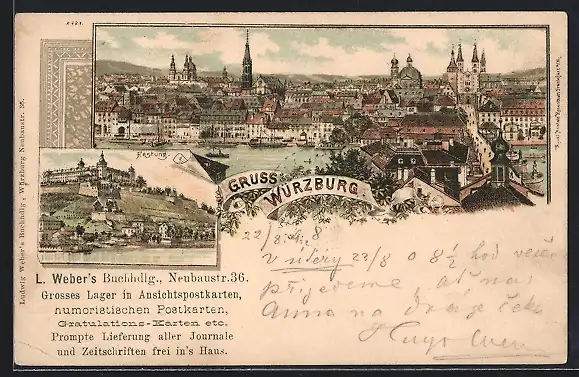 A 421.
Festung
GRUSS
WÜRZBURG
L. Weber's Buchhdlg., Neubaustr. 36.
Grosses Lager in Ansichtspostkarten,
numoristischen Postkarten,
Gratulations-Karten etc.
Prompte Lieferung aller Journale
und Zeitschriften frei in's Haus.
Ludwig Weber's Buchhdlg., Würzburg Neubaustr. 36.
22/8. 98
v úterý 23/8 o 8½ hod večer
přijedeme, ať nás
Anna na dráze čeká
Hugo